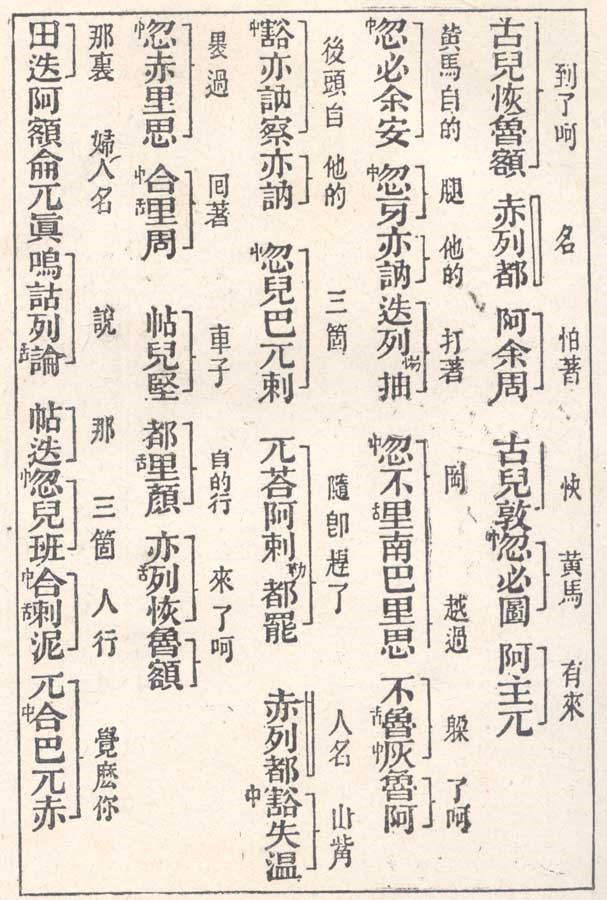 到了呵 名 怕著 快 黃馬 有來
古兒恢魯額 赤列都 阿余周 古兒敦中忽必圖 阿主兀
黃馬自的 腿 他的 打著 岡 越過 躱 了呵
中忽必余安 中忽牙亦訥 迭列惕抽 中忽不舌里南巴里思 不舌魯中灰魯阿
後頭自 他的 三箇 隨卽趕了 人名 山觜
中豁亦訥察亦訥 中忽兒巴兀剌 兀荅阿剌勒都罷 赤列都 中豁失溫
過 囘著 車子 自的行 來了呵
中忽赤里思 中合舌里周 帖兒堅 都舌里顏 亦舌列恢魯額
那裏 婦人名 說 那 三箇 人行 覺麽你
田迭 阿額侖兀眞 嗚詁列舌論 帖迭 中忽兒班 中合舌剌泥 兀中合巴兀赤